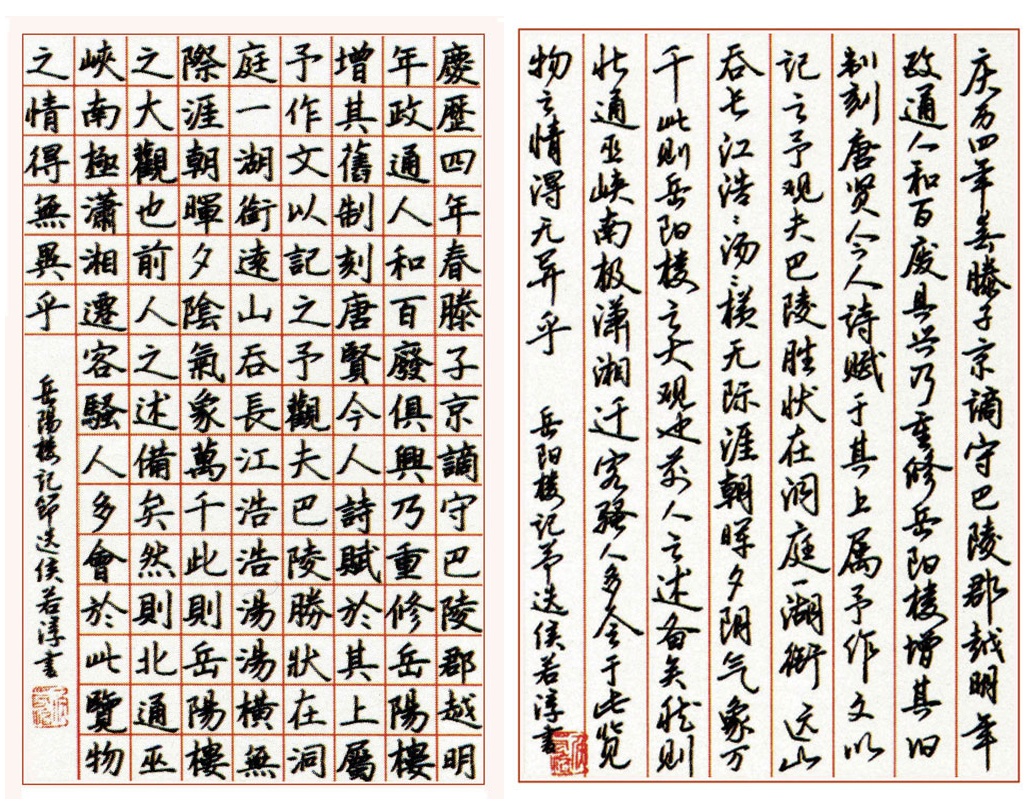 慶歷四年春滕子京謫守巴陵郡越明
年政通人和百廢俱興乃重修岳陽樓
增其舊制刻唐賢今人詩賦於其上屬
予作文以記之予觀夫巴陵勝狀在洞
庭一湖銜遠山吞長江浩浩湯湯橫無
際涯朝暉夕陰氣象萬千此則岳陽樓
之大觀也前人之述備矣然則北通巫
峽南極瀟湘遷客騷人多會於此覽物
之情得無異乎
岳陽樓記節选侯若淳書
庆历四年春滕子京谪守巴陵郡越明年
政通人和百废具兴乃重修岳阳楼增其旧
制刻唐贤今人诗赋于其上属予作文以
记之予观夫巴陵胜状在洞庭一湖衔远山
吞长江浩〻汤〻横无际涯朝晖夕阴气象万
千此则岳阳楼之大观也前人之述备矣然则
北通巫峡南极潇湘迁客骚人多会于此览
物之情得无异乎
岳阳楼记节选侯若淳書